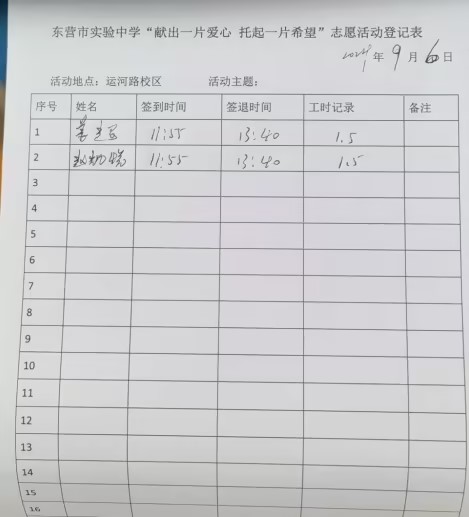 东营市实验中学“献出一片爱心 托起一片希望”志愿活动登记表
2024年 9月 6日
活动地点：运河路校区 活动主题：
序号 姓名 签到时间 签退时间 工时记录 备注
1 11:55 13:40 1.5
2 11:55 13:40 1.5
3
4
5
6
7
8
9
10
11
12
13
14
15
16